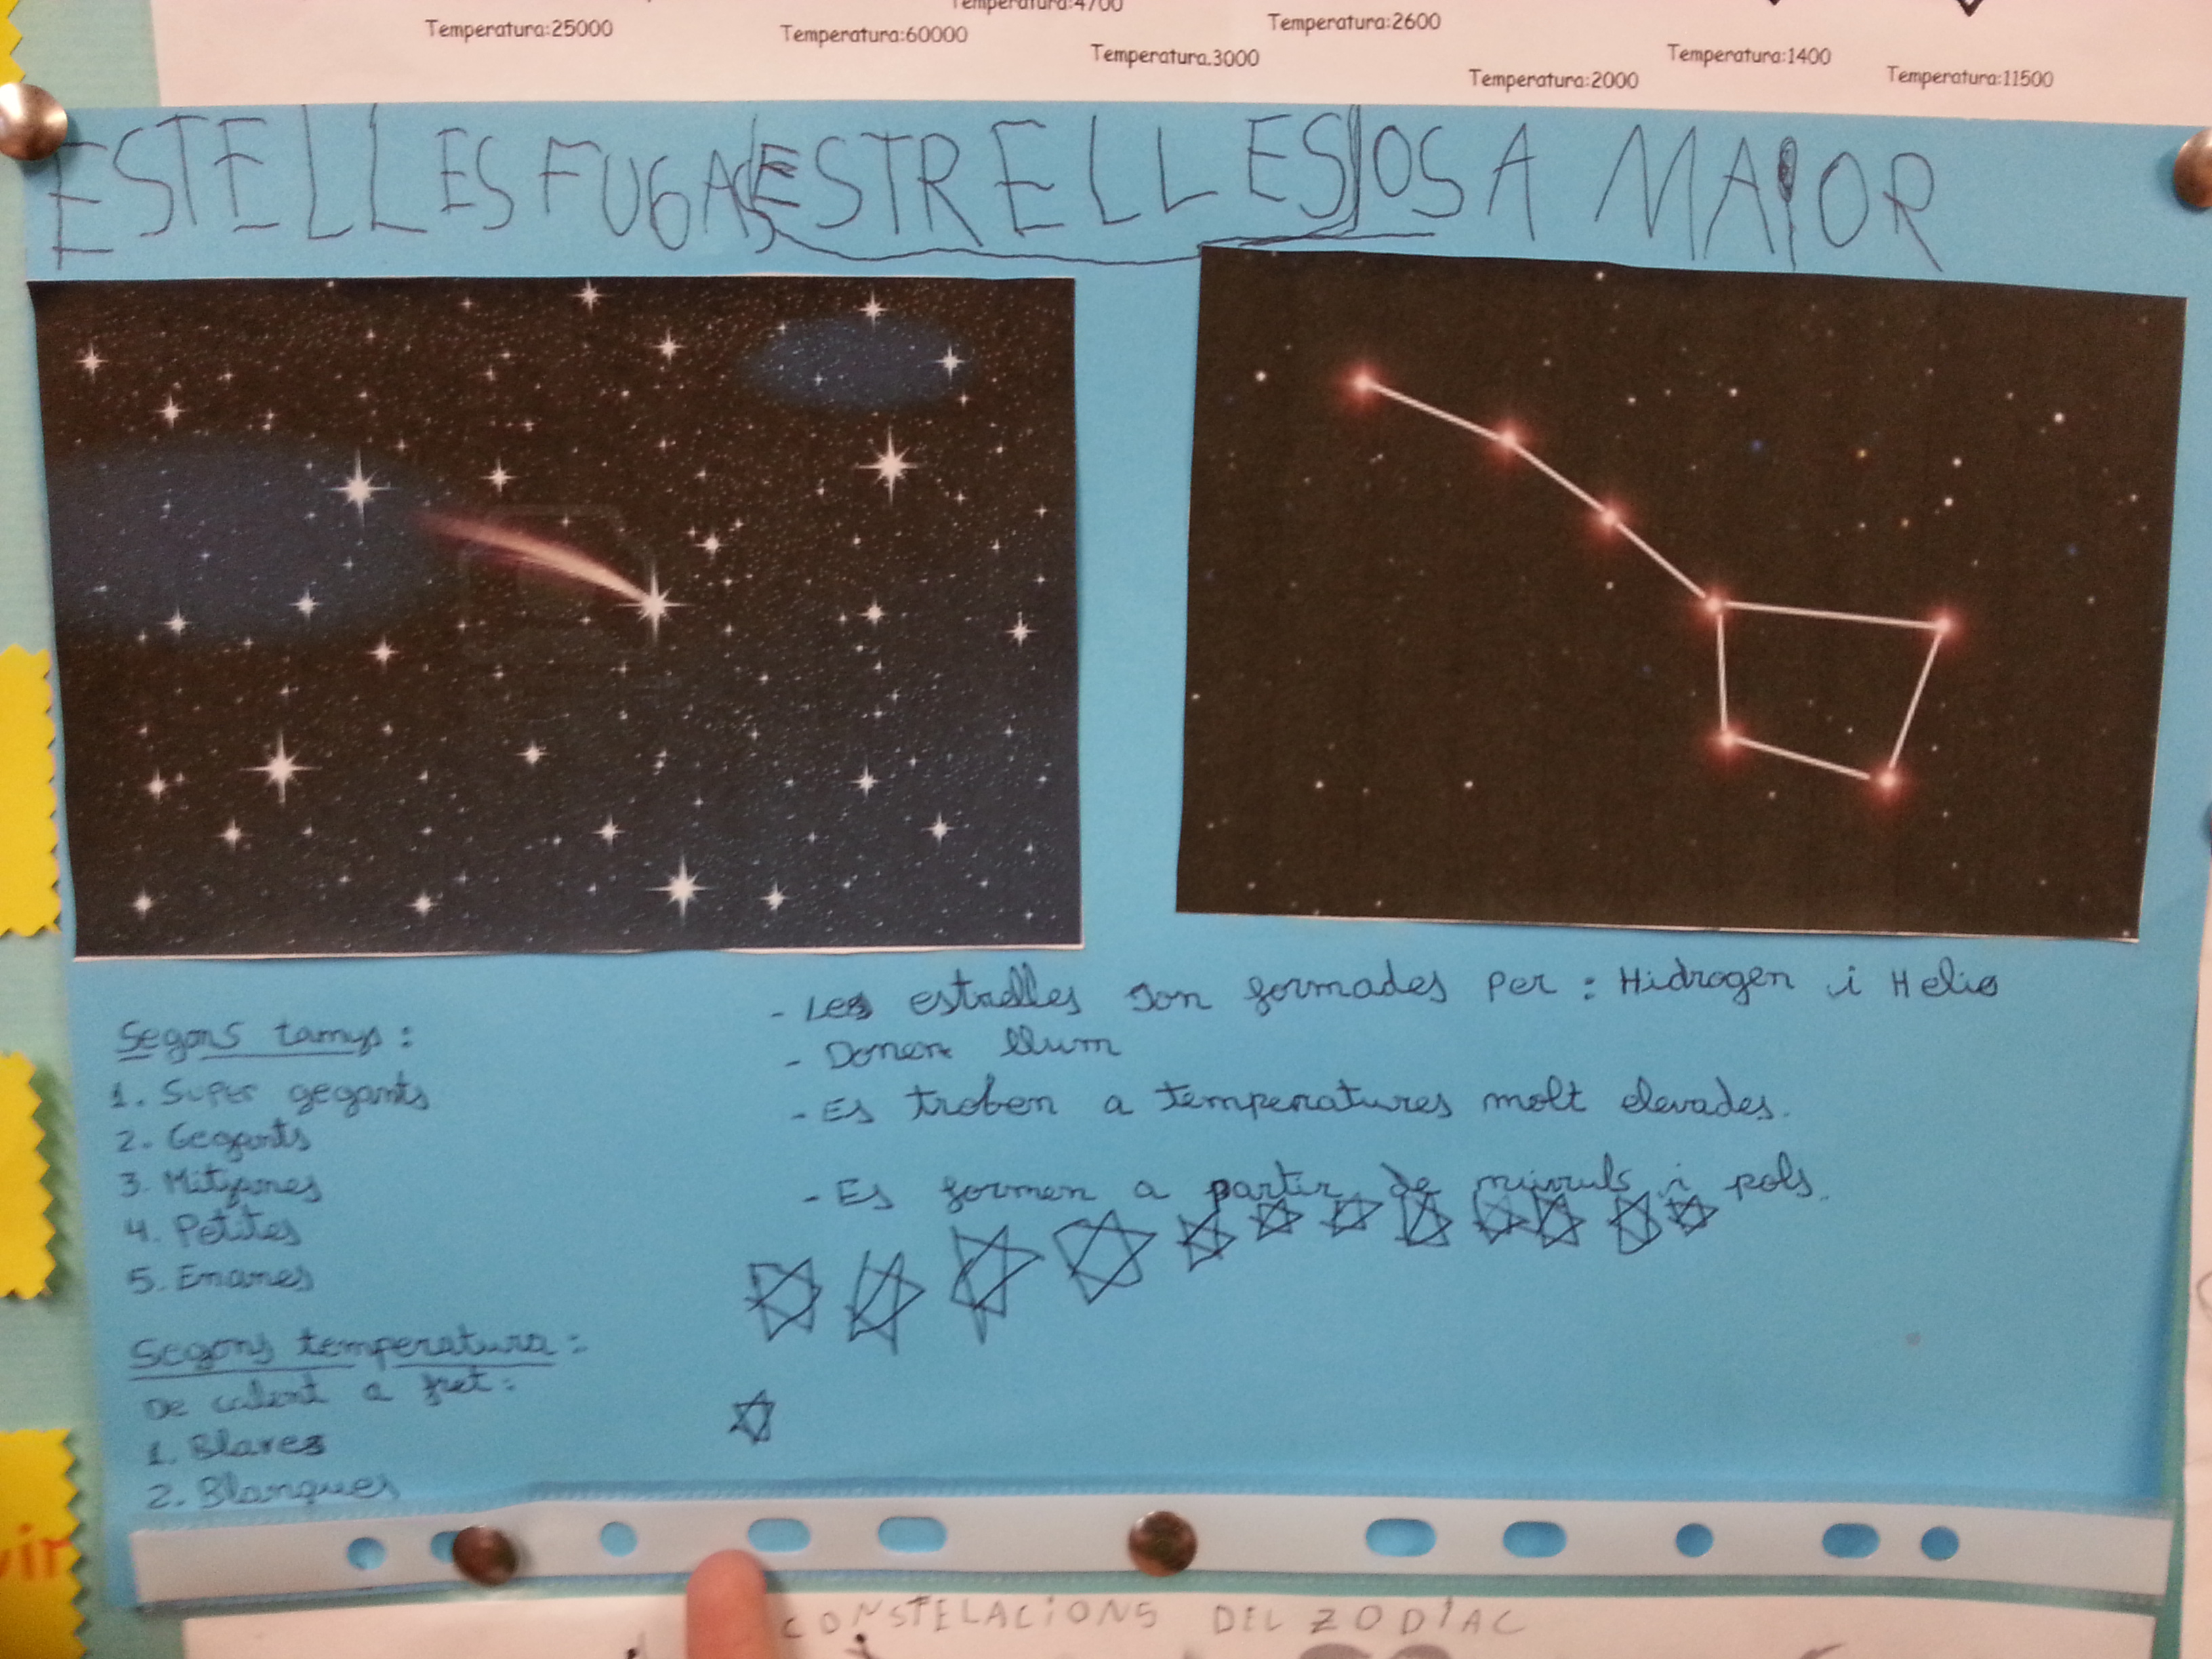 Temperatura:4700
Temperatura:25000
Temperatura:60000
Temperatura.3000
Temperatura:2600
Temperatura:2000
Temperatura:1400
Temperatura:11500
ESTELLES FUGAS ESTRELLES OSA MAIOR
Segons tamys:
1. Super gegants
2. Gegants
3. Mitjanes
4. Petites
5. Enanes
Segons temperatura:
De calent a fret:
1. Blaves
2. Blanques
- Les estrelles son formades per: Hidrogen i Helio
- Donen llum
- Es troben a temperatures molt elevades.
- Es formen a partir de núvuls i pols.
CONSTELACIONS DEL ZODIAC
vin